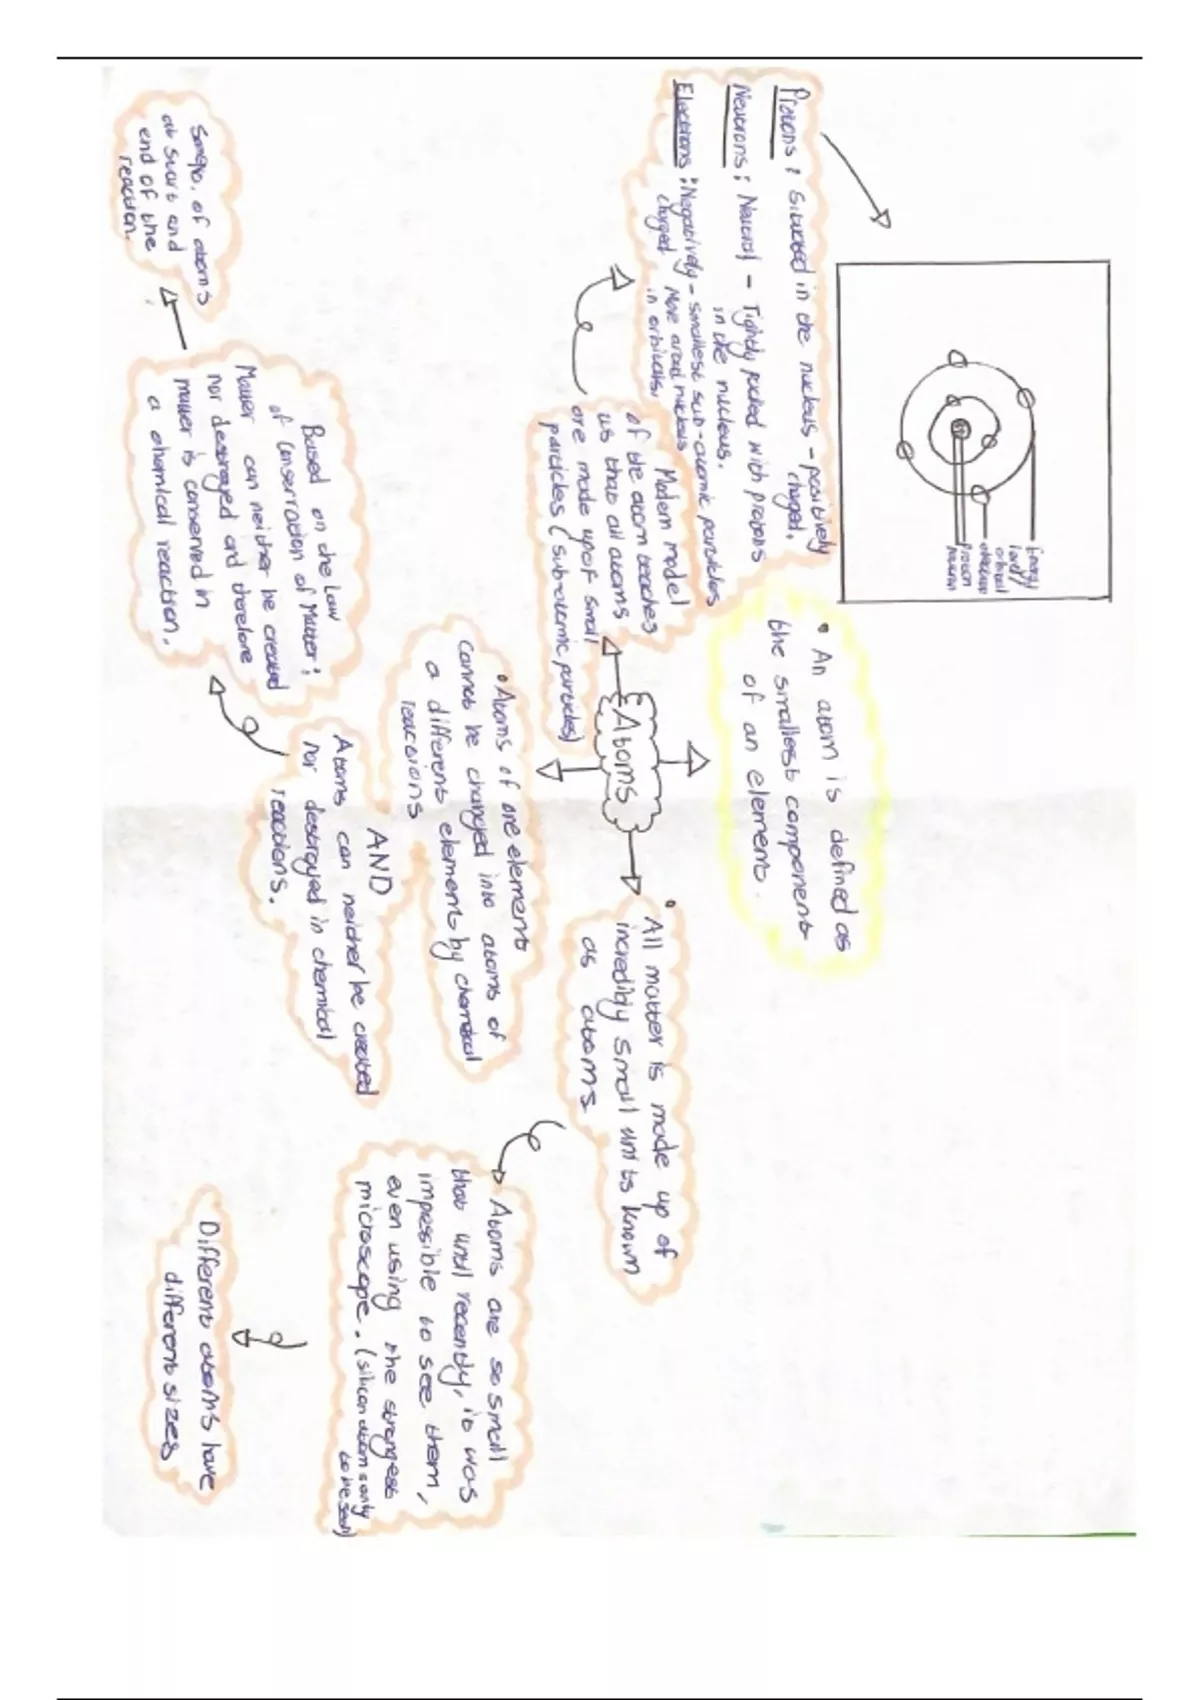 Protons : Situated in the nucleus - positively
charged.
Neutrons : Neutral - Tightly packed with protons
in the nucleus.
Electrons : Negatively - smallest sub-atomic particles
charged Move around nucleus
in orbitals.
Energy
level/
orbital
electron
proton
neutron
• An atom is defined as
the smallest component
of an element.
Modern model
of the atom teaches
us that all atoms
are made up of small
particles (sub-atomic particles)
Atoms
• All matter is made up of
incredibly small units known
as atoms
• Atoms of one element
cannot be changed into atoms of
a different element by chemical
reactions
AND
Atoms can neither be created
nor destroyed in chemical
reactions.
Based on the Law
of Conservation of Matter :
Matter can neither be created
nor destroyed and therefore
matter is conserved in
a chemical reaction.
Same no. of atoms
at start and
end of the
reaction.
Atoms are so small
that until recently, it was
impossible to see them,
even using the strongest
microscope. (silicon atoms only
to be seen)
Different atoms have
different sizes